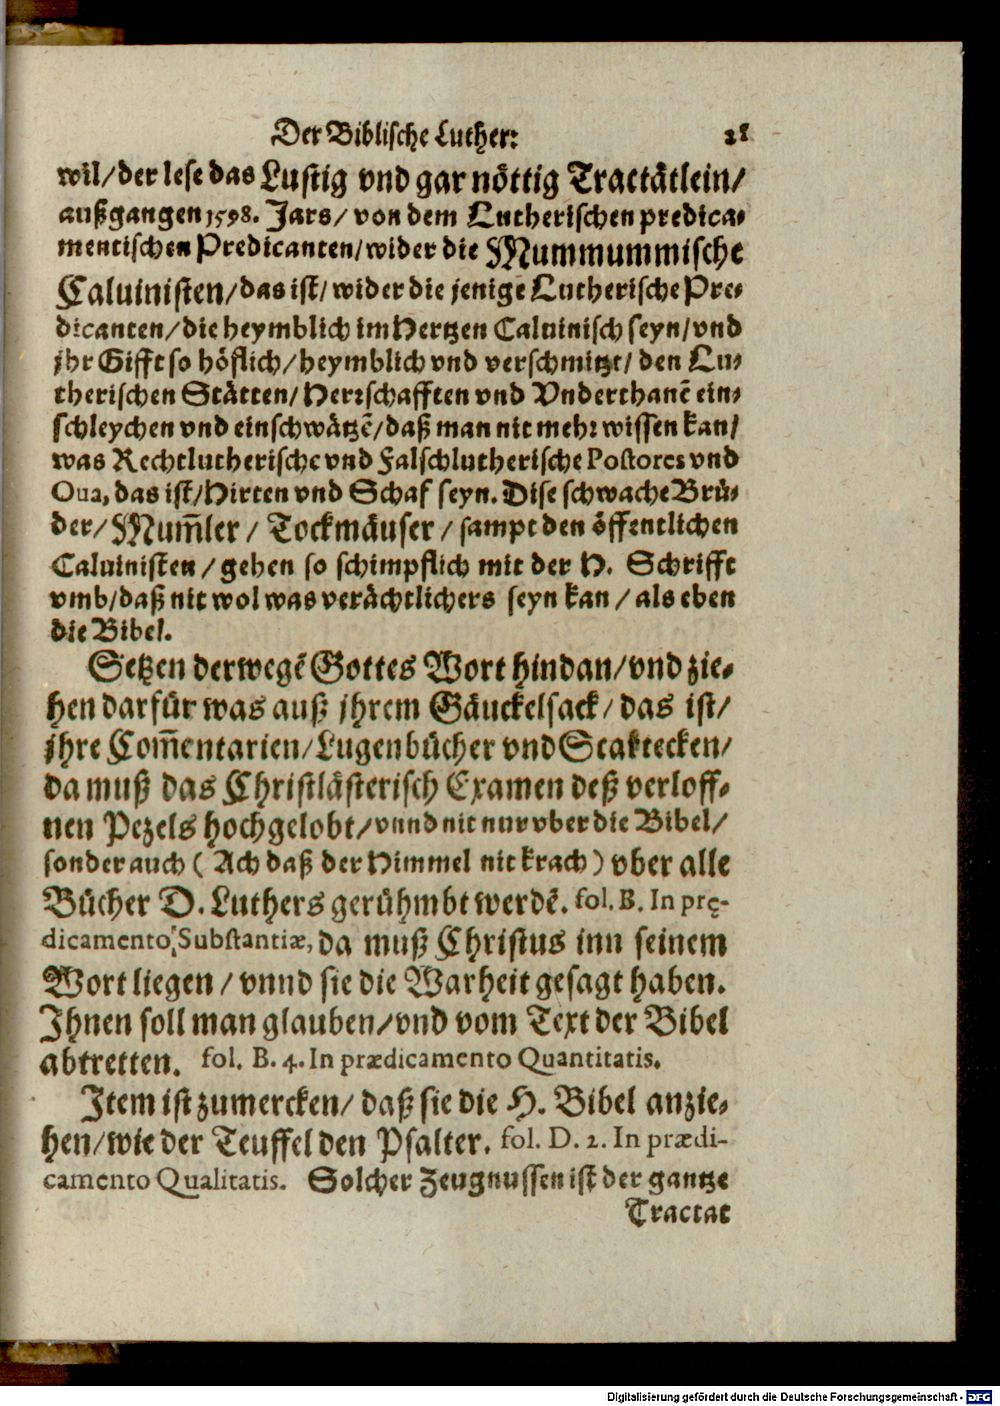 Der Biblische Luther: 21
wil/der lese das Lustig vnd gar nöttig Tractätlein/
außgangen 1598. Jars/ von dem Lutherischen predica-
mentischen Predicanten/wider die Mummummische
Caluinisten/das ist/wider die jenige Lutherische Pre-
dicanten/die heymblich im Hertzen Caluinisch seyn/vnd
jhr Gifft so höflich/heymblich vnd verschmitzt/ den Lu-
therischen Stätten/Herrschafften vnd Vnderthanē ein-
schleychen vnd einschwätzē/daß man nit mehr wissen kan/
was Rechtlutherische vnd Falschlutherische Pastores vnd
Oua, das ist/Hirten vnd Schaf seyn. Dise schwache Brü-
der/Mum̄ler / Tockmäuser / sampt den öffentlichen
Caluinisten / gehen so schimpflich mit der H. Schrifft
vmb/daß nit wol was verächtlichers seyn kan / als eben
die Bibel.
Setzen derwegē Gottes Wort hindan/vnd zie-
hen darfür was auß jhrem Gäuckelsack/ das ist/
jhre Com̄entarien/Lugenbücher vnd Scaktecken/
da muß das Christlästerisch Examen deß verloff-
nen Pezels hochgelobt/vnnd nit nur vber die Bibel/
sonder auch ( Ach daß der Himmel nit krach ) vber alle
Bücher D. Luthers gerühmbt werdē. fol. B. In prę-
dicamento Substantiæ, da muß Christus inn seinem
Wort liegen / vnnd sie die Warheit gesagt haben.
Ihnen soll man glauben/vnd vom Text der Bibel
abtretten. fol. B. 4. In prædicamento Quantitatis.
Item ist zumercken/ daß sie die H. Bibel anzie-
hen/wie der Teuffel den Psalter. fol. D. 2. In prædi-
camento Qualitatis. Solcher Zeugnussen ist der gantze
Tractat
Digitalisierung gefördert durch die Deutsche Forschungsgemeinschaft - DFG